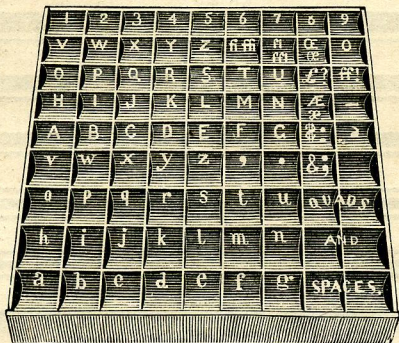 1 2 3 4 5 6 7 8 9
V W X Y Z fi ffi fl ffl Œ œ 0
O P Q R S T U £ ? ff !
H I J K L M N Æ æ —
A B C D E F G $ :
v w x y z , . & ;
o p q r s t u QUADS
h i j k l m n AND
a b c d e f g SPACES.